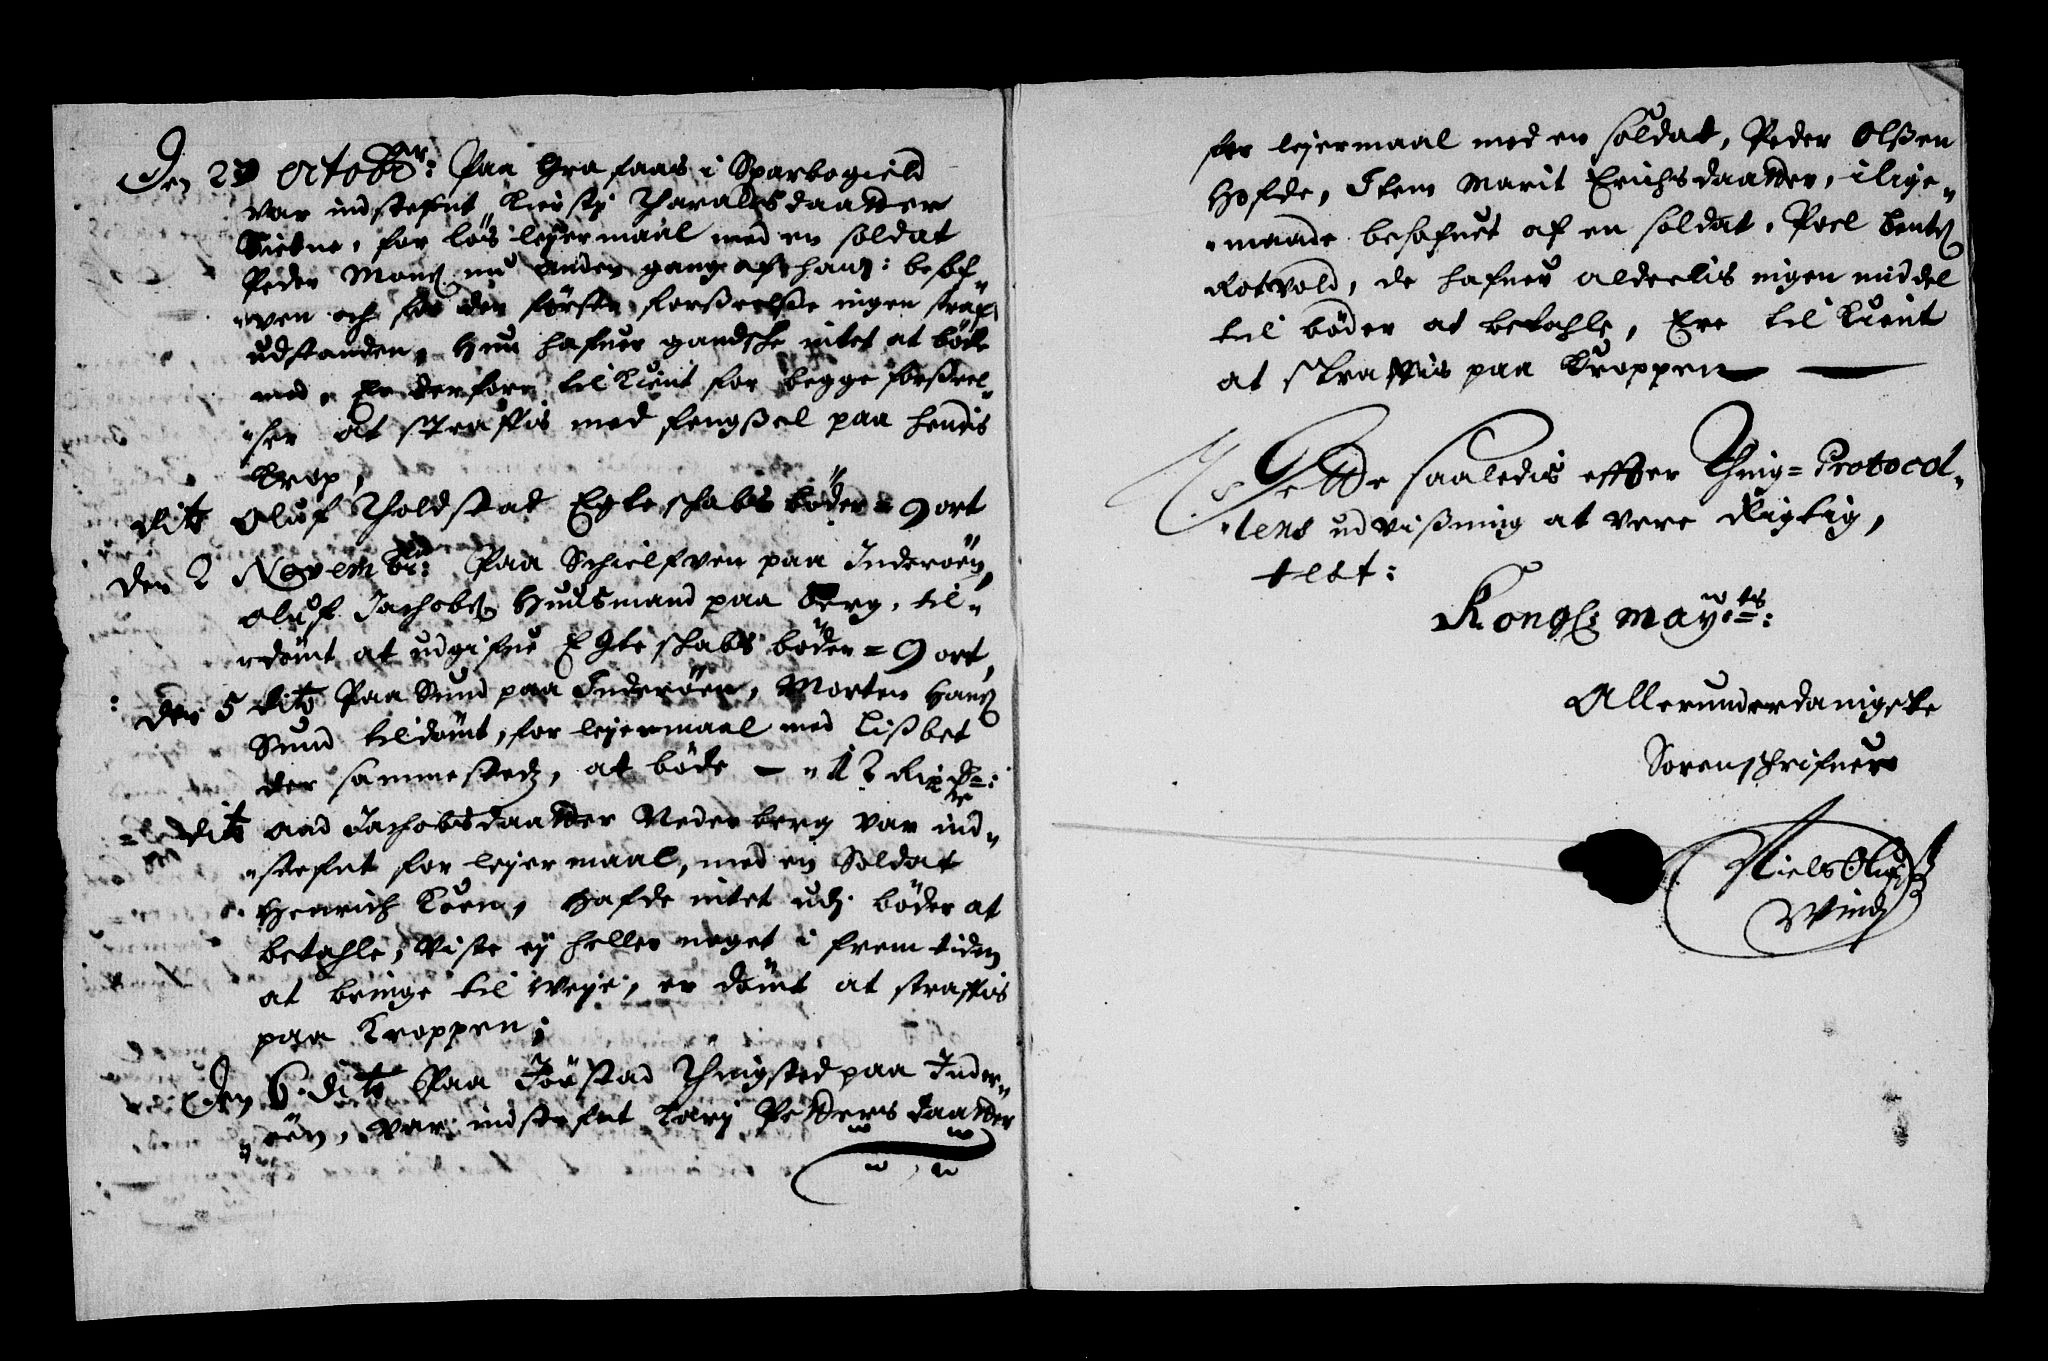 Den 29 octobr: Paa Grafaas i Sparbogield
var indstefnt Kiersty Tharaldsdaatter
for løs lejermaal med en soldat
Peder Monß nu anden gang af hanß: besof-
ven och for den første forßeelße ingen straf
udstanden, Hun hafuer gandshe intet at bøde
med, Er derfore til Kient for begge forßeel-
ser at straffis med fengßel paa hendis
Krop,
dito Oluf Tholdstad Egteschabs bøder = 9 ort
den 2 Novembr: Paa Schielfven paa Inderøen,
oluf Jachobß Huusmand paa Berg, til-
dømt at udgifue Egteschabs bøder = 9 ort,
den 5 dito Paa Sund paa Inderøen, Morten Hanß
Sund tildømt, for lejermaal med Lißbet
der sammestedz, at bøde — 12 Rixdr:
dito Aad Jachobsdaatter Nederberg var ind-
stefnt for lejermaal, med en Soldat
Henrich Koen, hafde intet udj bøder at
betahle, viste ej heller noget i fremtiden
at bringe til weje, er dømt at straffis
paa Kroppen;
Den 6 dito Paa Jørstad Thingsted paa Inder-
øen, var indstefnt Karj Pettersdaatter
for lejermaal med en soldat, Peder Olßen
Hofde, Item Marit Erichsdaatter, ilige-
maade besofuet af en soldat, Poel Bentß
Rotvold, de hafuer aldeelis ingen middel
til bøder at betahle, Ere til Kient
at straffis paa Kroppen —
Dette saaledis effter Thing-Protocol-
lens udvißning at vere Rigtig,
test:
Kongl: mayts:
Allerunderdanigste
Sorenschrifuer
Niels Olufß
Wind